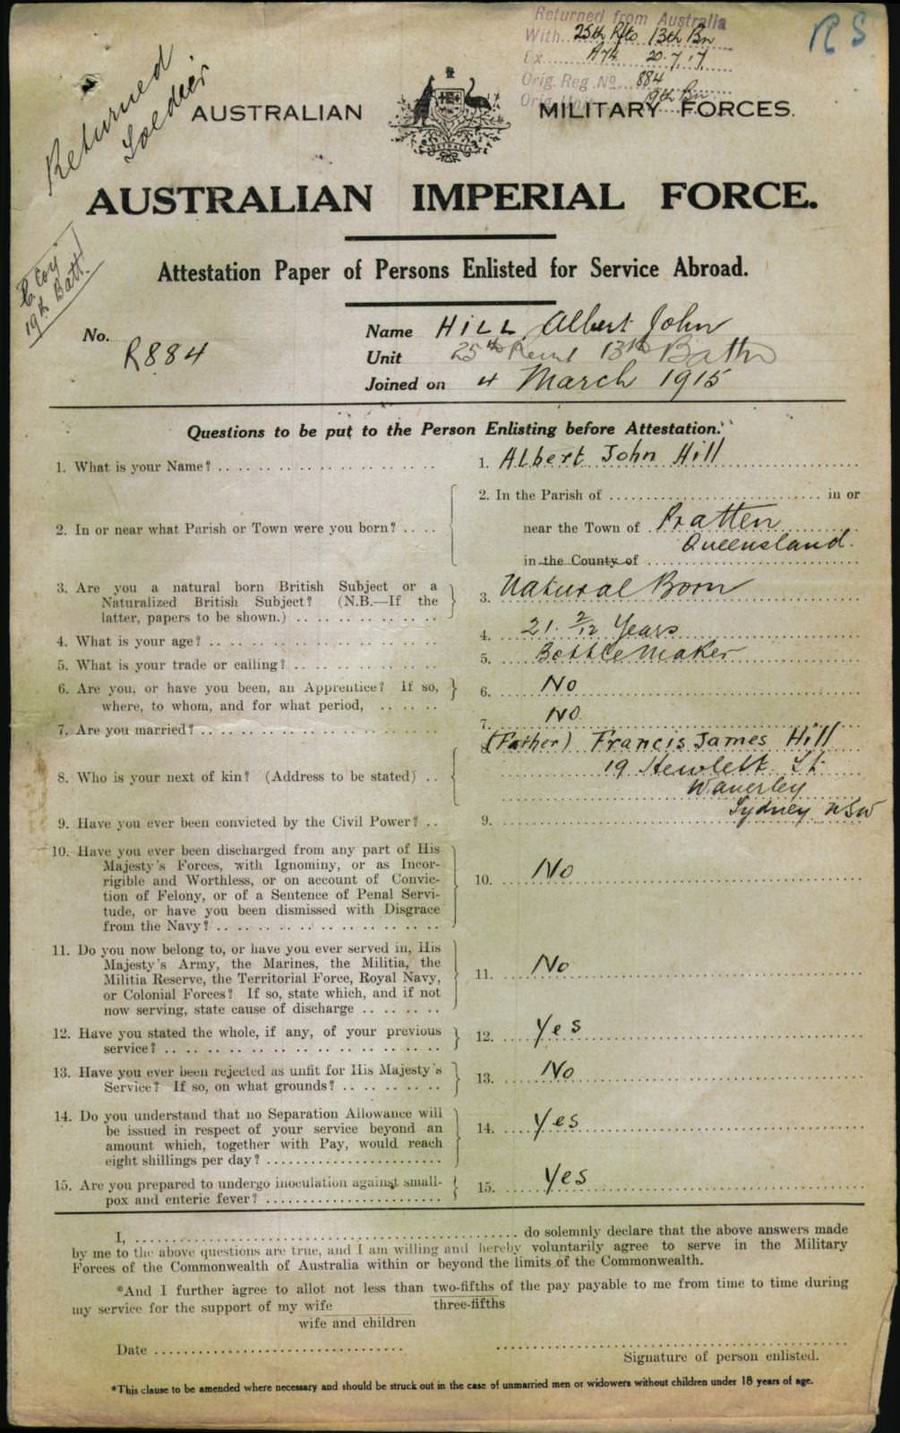 Returned from Australia
With 25th Rfts 13th Bn
Ex 20.7.17
Orig. Reg. No. 884
19th Bn
RS
Returned
Soldier
AUSTRALIAN MILITARY FORCES.
AUSTRALIAN IMPERIAL FORCE.
C Coy
19th Batt
Attestation Paper of Persons Enlisted for Service Abroad.
No. R884
Name HILL Albert John
Unit 25th Reinf 13th Battn
Joined on 4 March 1915
Questions to be put to the Person Enlisting before Attestation.
1. What is your Name? 1. Albert John Hill
2. In or near what Parish or Town were you born? 2. In the Parish of in or
near the Town of Pratten
Queensland.
in the County of
3. Are you a natural born British Subject or a
Naturalized British Subject? (N.B.—If the
latter, papers to be shown.) 3. Natural Born
4. What is your age? 4. 21 2/12 Years
5. What is your trade or calling? 5. Bottle Maker
6. Are you, or have you been, an Apprentice? If so,
where, to whom, and for what period, 6. No
7. Are you married? 7. No
8. Who is your next of kin? (Address to be stated) 8. (Father) Francis James Hill
19 Hewlett St
Waverley
Sydney NSW
9. Have you ever been convicted by the Civil Power? 9.
10. Have you ever been discharged from any part of His
Majesty's Forces, with Ignominy, or as Incor-
rigible and Worthless, or on account of Convic-
tion of Felony, or of a Sentence of Penal Servi-
tude, or have you been dismissed with Disgrace
from the Navy? 10. No
11. Do you now belong to, or have you ever served in, His
Majesty's Army, the Marines, the Militia, the
Militia Reserve, the Territorial Force, Royal Navy,
or Colonial Forces? If so, state which, and if not
now serving, state cause of discharge 11. No
12. Have you stated the whole, if any, of your previous
service? 12. Yes
13. Have you ever been rejected as unfit for His Majesty's
Service? If so, on what grounds? 13. No
14. Do you understand that no Separation Allowance will
be issued in respect of your service beyond an
amount which, together with Pay, would reach
eight shillings per day? 14. Yes
15. Are you prepared to undergo inoculation against small-
pox and enteric fever? 15. Yes
I, do solemnly declare that the above answers made
by me to the above questions are true, and I am willing and hereby voluntarily agree to serve in the Military
Forces of the Commonwealth of Australia within or beyond the limits of the Commonwealth.
*And I further agree to allot not less than two-fifths of the pay payable to me from time to time during
three-fifths
my service for the support of my wife
wife and children
Date
Signature of person enlisted.
*This clause to be amended where necessary and should be struck out in the case of unmarried men or widowers without children under 18 years of age.